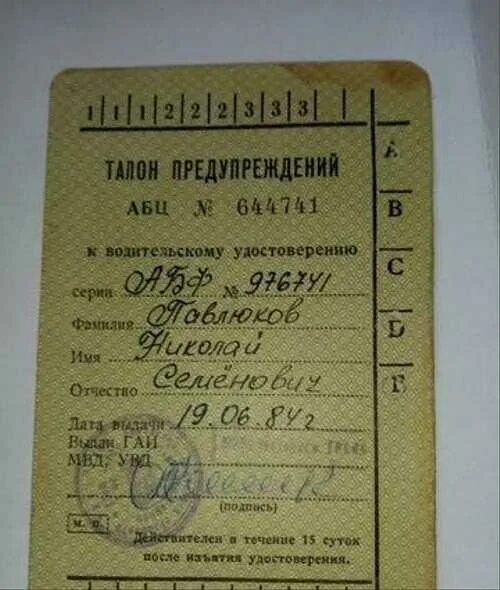 1 1 1 2 2 2 3 3 3
ТАЛОН ПРЕДУПРЕЖДЕНИЙ
АБЦ № 644741
к водительскому удостоверению
серии АБФ № 976741
Фамилия Павлюков
Имя Николай
Отчество Семёнович
Дата выдачи 19.06.84г
Выдан ГАИ
МВД, УВД
(подпись)
м. п.
Действителен в течение 15 суток
после изъятия удостоверения.
A
B
C
D
E